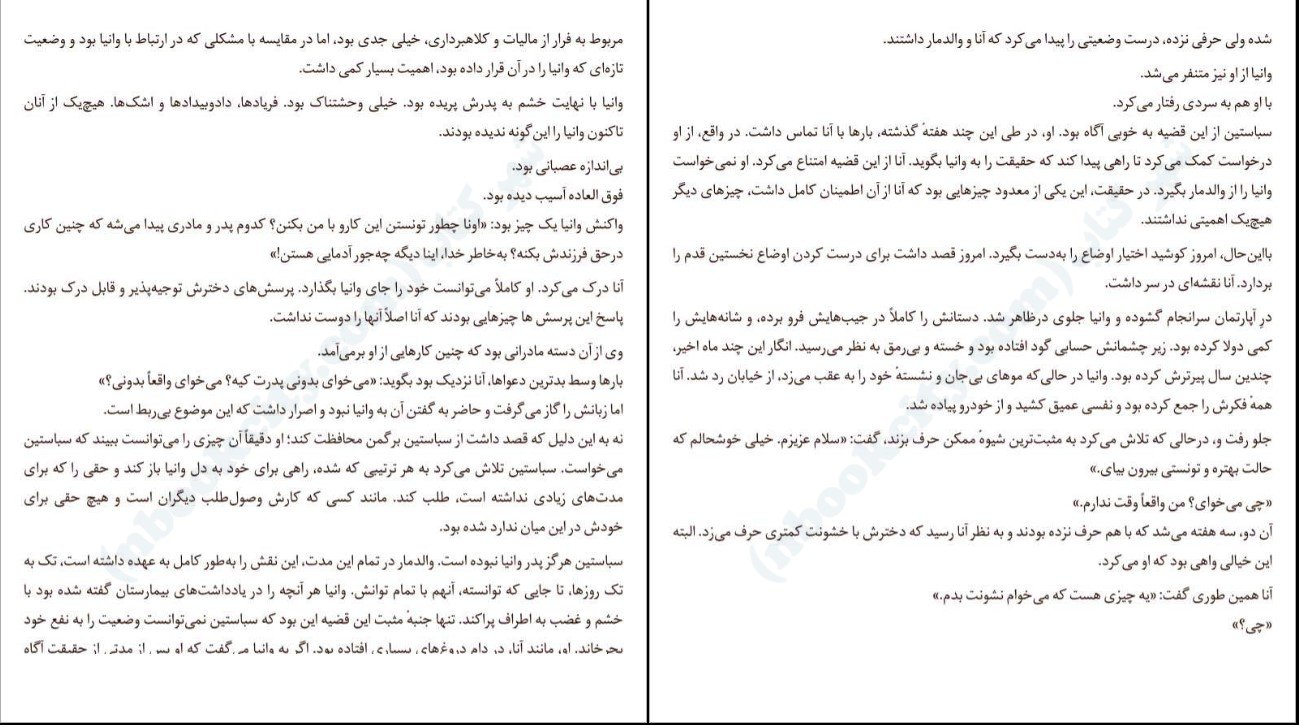 مربوط به فرار از مالیات و کلاهبرداری، خیلی جدی بود، اما در مقایسه با مشکلی که در ارتباط با وانیا بود و وضعیت
تازه‌ای که وانیا را در آن قرار داده بود، اهمیت بسیار کمی داشت.
وانیا با نهایت خشم به پدرش پریده بود. خیلی وحشتناک بود. فریادها، دادوبیدادها و اشک‌ها. هیچ‌یک از آنان
تاکنون وانیا را این‌گونه ندیده بودند.
بی‌اندازه عصبانی بود.
فوق العاده آسیب دیده بود.
واکنش وانیا یک چیز بود: «اونا چطور تونستن این کارو با من بکنن؟ کدوم پدر و مادری پیدا می‌شه که چنین کاری
درحق فرزندش بکنه؟ به‌خاطر خدا، اینا دیگه چه‌جور آدمایی هستن!»
آنا درک می‌کرد. او کاملاً می‌توانست خود را جای وانیا بگذارد. پرسش‌های دخترش توجیه‌پذیر و قابل درک بودند.
پاسخ این پرسش ها چیزهایی بودند که آنا اصلاً آنها را دوست نداشت.
وی از آن دسته مادرانی بود که چنین کارهایی از او برمی‌آمد.
بارها وسط بدترین دعواها، آنا نزدیک بود بگوید: «می‌خوای بدونی پدرت کیه؟ می‌خوای واقعاً بدونی؟»
اما زبانش را گاز می‌گرفت و حاضر به گفتن آن به وانیا نبود و اصرار داشت که این موضوع بی‌ربط است.
نه به این دلیل که قصد داشت از سباستین برگمن محافظت کند؛ او دقیقاً آن چیزی را می‌توانست ببیند که سباستین
می‌خواست. سباستین تلاش می‌کرد به هر ترتیبی که شده، راهی برای خود به دل وانیا باز کند و حقی را که برای
مدت‌های زیادی نداشته است، طلب کند. مانند کسی که کارش وصول‌طلب دیگران است و هیچ حقی برای
خودش در این میان ندارد شده بود.
سباستین هرگز پدر وانیا نبوده است. والدمار در تمام این مدت، این نقش را به‌طور کامل به عهده داشته است، تک به
تک روزها، تا جایی که توانسته، آنهم با تمام توانش. وانیا هر آنچه را در یادداشت‌های بیمارستان گفته شده بود با
خشم و غضب به اطراف پراکند. تنها جنبهٔ مثبت این قضیه این بود که سباستین نمی‌توانست وضعیت را به نفع خود
بچرخاند. او، مانند آنا، در دام دروغ‌های بسیاری افتاده بود. اگر به وانیا می‌گفت که او پس از مدتی از حقیقت آگاه
شهر کتاب (nbookcity.com)
شده ولی حرفی نزده، درست وضعیتی را پیدا می‌کرد که آنا و والدمار داشتند.
وانیا از او نیز متنفر می‌شد.
با او هم به سردی رفتار می‌کرد.
سباستین از این قضیه به خوبی آگاه بود. او، در طی این چند هفتهٔ گذشته، بارها با آنا تماس داشت. در واقع، از او
درخواست کمک می‌کرد تا راهی پیدا کند که حقیقت را به وانیا بگوید. آنا از این قضیه امتناع می‌کرد. او نمی‌خواست
وانیا را از والدمار بگیرد. در حقیقت، این یکی از معدود چیزهایی بود که آنا از آن اطمینان کامل داشت، چیزهای دیگر
هیچ‌یک اهمیتی نداشتند.
بااین‌حال، امروز کوشید اختیار اوضاع را به‌دست بگیرد. امروز قصد داشت برای درست کردن اوضاع نخستین قدم را
بردارد. آنا نقشه‌ای در سر داشت.
درِ آپارتمان سرانجام گشوده و وانیا جلوی درظاهر شد. دستانش را کاملاً در جیب‌هایش فرو برده، و شانه‌هایش را
کمی دولا کرده بود. زیر چشمانش حسابی گود افتاده بود و خسته و بی‌رمق به نظر می‌رسید. انگار این چند ماه اخیر،
چندین سال پیرترش کرده بود. وانیا در حالی‌که موهای بی‌جان و نشستهٔ خود را به عقب می‌زد، از خیابان رد شد. آنا
همهٔ فکرش را جمع کرده بود و نفسی عمیق کشید و از خودرو پیاده شد.
جلو رفت و، درحالی که تلاش می‌کرد به مثبت‌ترین شیوهٔ ممکن حرف بزند، گفت: «سلام عزیزم. خیلی خوشحالم که
حالت بهتره و تونستی بیرون بیای.»
«چی می‌خوای؟ من واقعاً وقت ندارم.»
آن دو، سه هفته می‌شد که با هم حرف نزده بودند و به نظر آنا رسید که دخترش با خشونت کمتری حرف می‌زد. البته
این خیالی واهی بود که او می‌کرد.
آنا همین طوری گفت: «یه چیزی هست که می‌خوام نشونت بدم.»
«چی؟»
شهر کتاب (nbookcity.com)